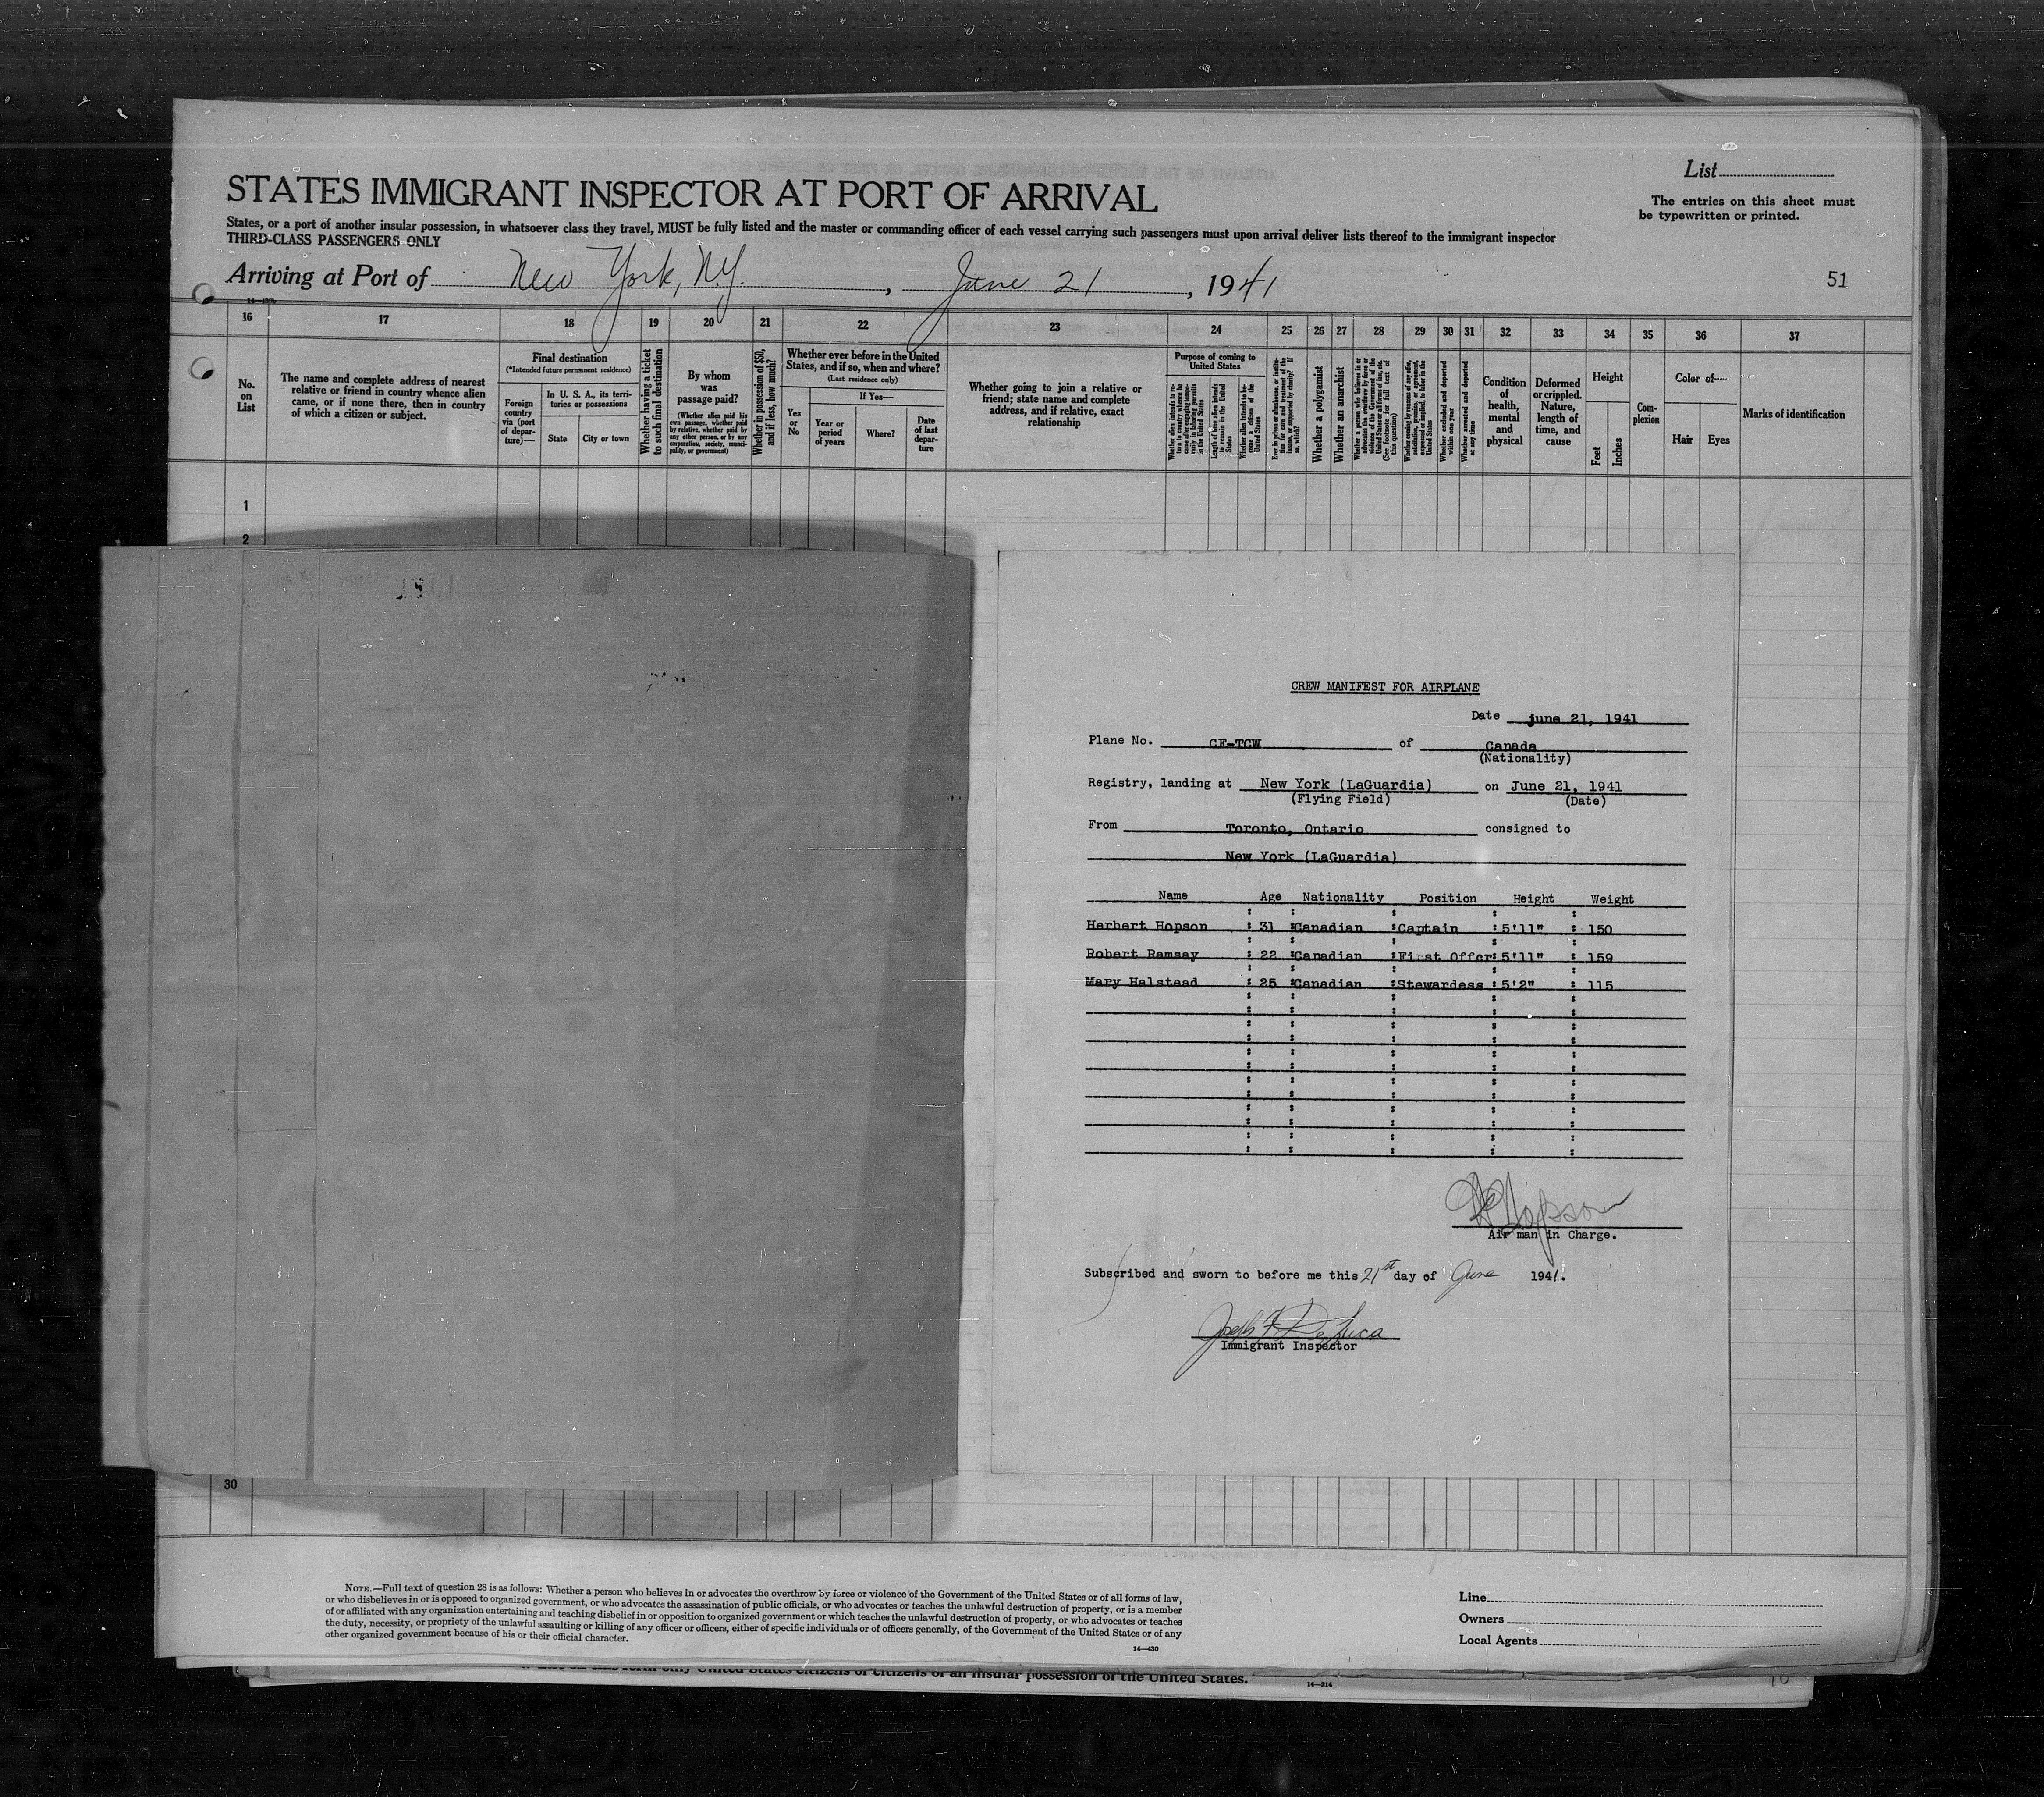 List
STATES IMMIGRANT INSPECTOR AT PORT OF ARRIVAL
The entries on this sheet must
be typewritten or printed.
States, or a port of another insular possession, in whatsoever class they travel, MUST be fully listed and the master or commanding officer of each vessel carrying such passengers must upon arrival deliver lists thereof to the immigrant inspector
THIRD-CLASS PASSENGERS ONLY
Arriving at Port of New York, N.Y., June 21, 1941
51
16 17 18 19 20 21 22 23 24 25 26 27 28 29 30 31 32 33 34 35 36 37
No.
on
List
The name and complete address of nearest
relative or friend in country whence alien
came, or if none there, then in country
of which a citizen or subject.
Final destination
(*Intended future permanent residence)
Foreign
country
via (port
of depar-
ture)—
In U. S. A., its terri-
tories or possessions
State
City or town
Whether having a ticket
to such final destination
By whom
was
passage paid?
(Whether alien paid his
own passage, whether paid
by relative, whether paid by
any other person, or by any
corporation, society, munici-
pality, or government)
Whether in possession of $50,
and if less, how much?
Whether ever before in the United
States, and if so, when and where?
(Last residence only)
Yes
or
No
If Yes—
Year or
period
of years
Where?
Date
of last
depar-
ture
Whether going to join a relative or
friend; state name and complete
address, and if relative, exact
relationship
Purpose of coming to
United States
Length of time alien intends
to remain in the United
States
Whether alien intends to be-
come a citizen of the
United States
Whether a polygamist
Whether an anarchist
Whether arrested and deported
at any time
Condition
of
health,
mental
and
physical
Deformed
or crippled.
Nature,
length of
time, and
cause
Height
Feet
Inches
Com-
plexion
Color of—
Hair
Eyes
Marks of identification
1
2
CREW MANIFEST FOR AIRPLANE
Date june 21, 1941
Plane No. CF-TCW of Canada
(Nationality)
Registry, landing at New York (LaGuardia) on June 21, 1941
(Flying Field) (Date)
From Toronto, Ontario consigned to
New York (LaGuardia)
Name Age Nationality Position Height Weight
Herbert Hopson : 31 :Canadian :Captain : 5'11" : 150
Robert Ramsay : 22 :Canadian :First Offcr: 5'11" : 159
Mary Halstead : 25 :Canadian :Stewardess : 5'2" : 115
H Hopson
Air man in Charge.
Subscribed and sworn to before me this 21st day of June 1941.
Joseph F DeLuca
Immigrant Inspector
30
NOTE.—Full text of question 28 is as follows: Whether a person who believes in or advocates the overthrow by force or violence of the Government of the United States or of all forms of law,
or who disbelieves in or is opposed to organized government, or who advocates the assassination of public officials, or who advocates or teaches the unlawful destruction of property, or is a member
of or affiliated with any organization entertaining and teaching disbelief in or opposition to organized government or which teaches the unlawful destruction of property, or who advocates or teaches
the duty, necessity, or propriety of the unlawful assaulting or killing of any officer or officers, either of specific individuals or of officers generally, of the Government of the United States or of any
other organized government because of his or their official character.
14—430
Line
Owners
Local Agents
this form only United States citizens or citizens of an insular possession of the United States.
14—314